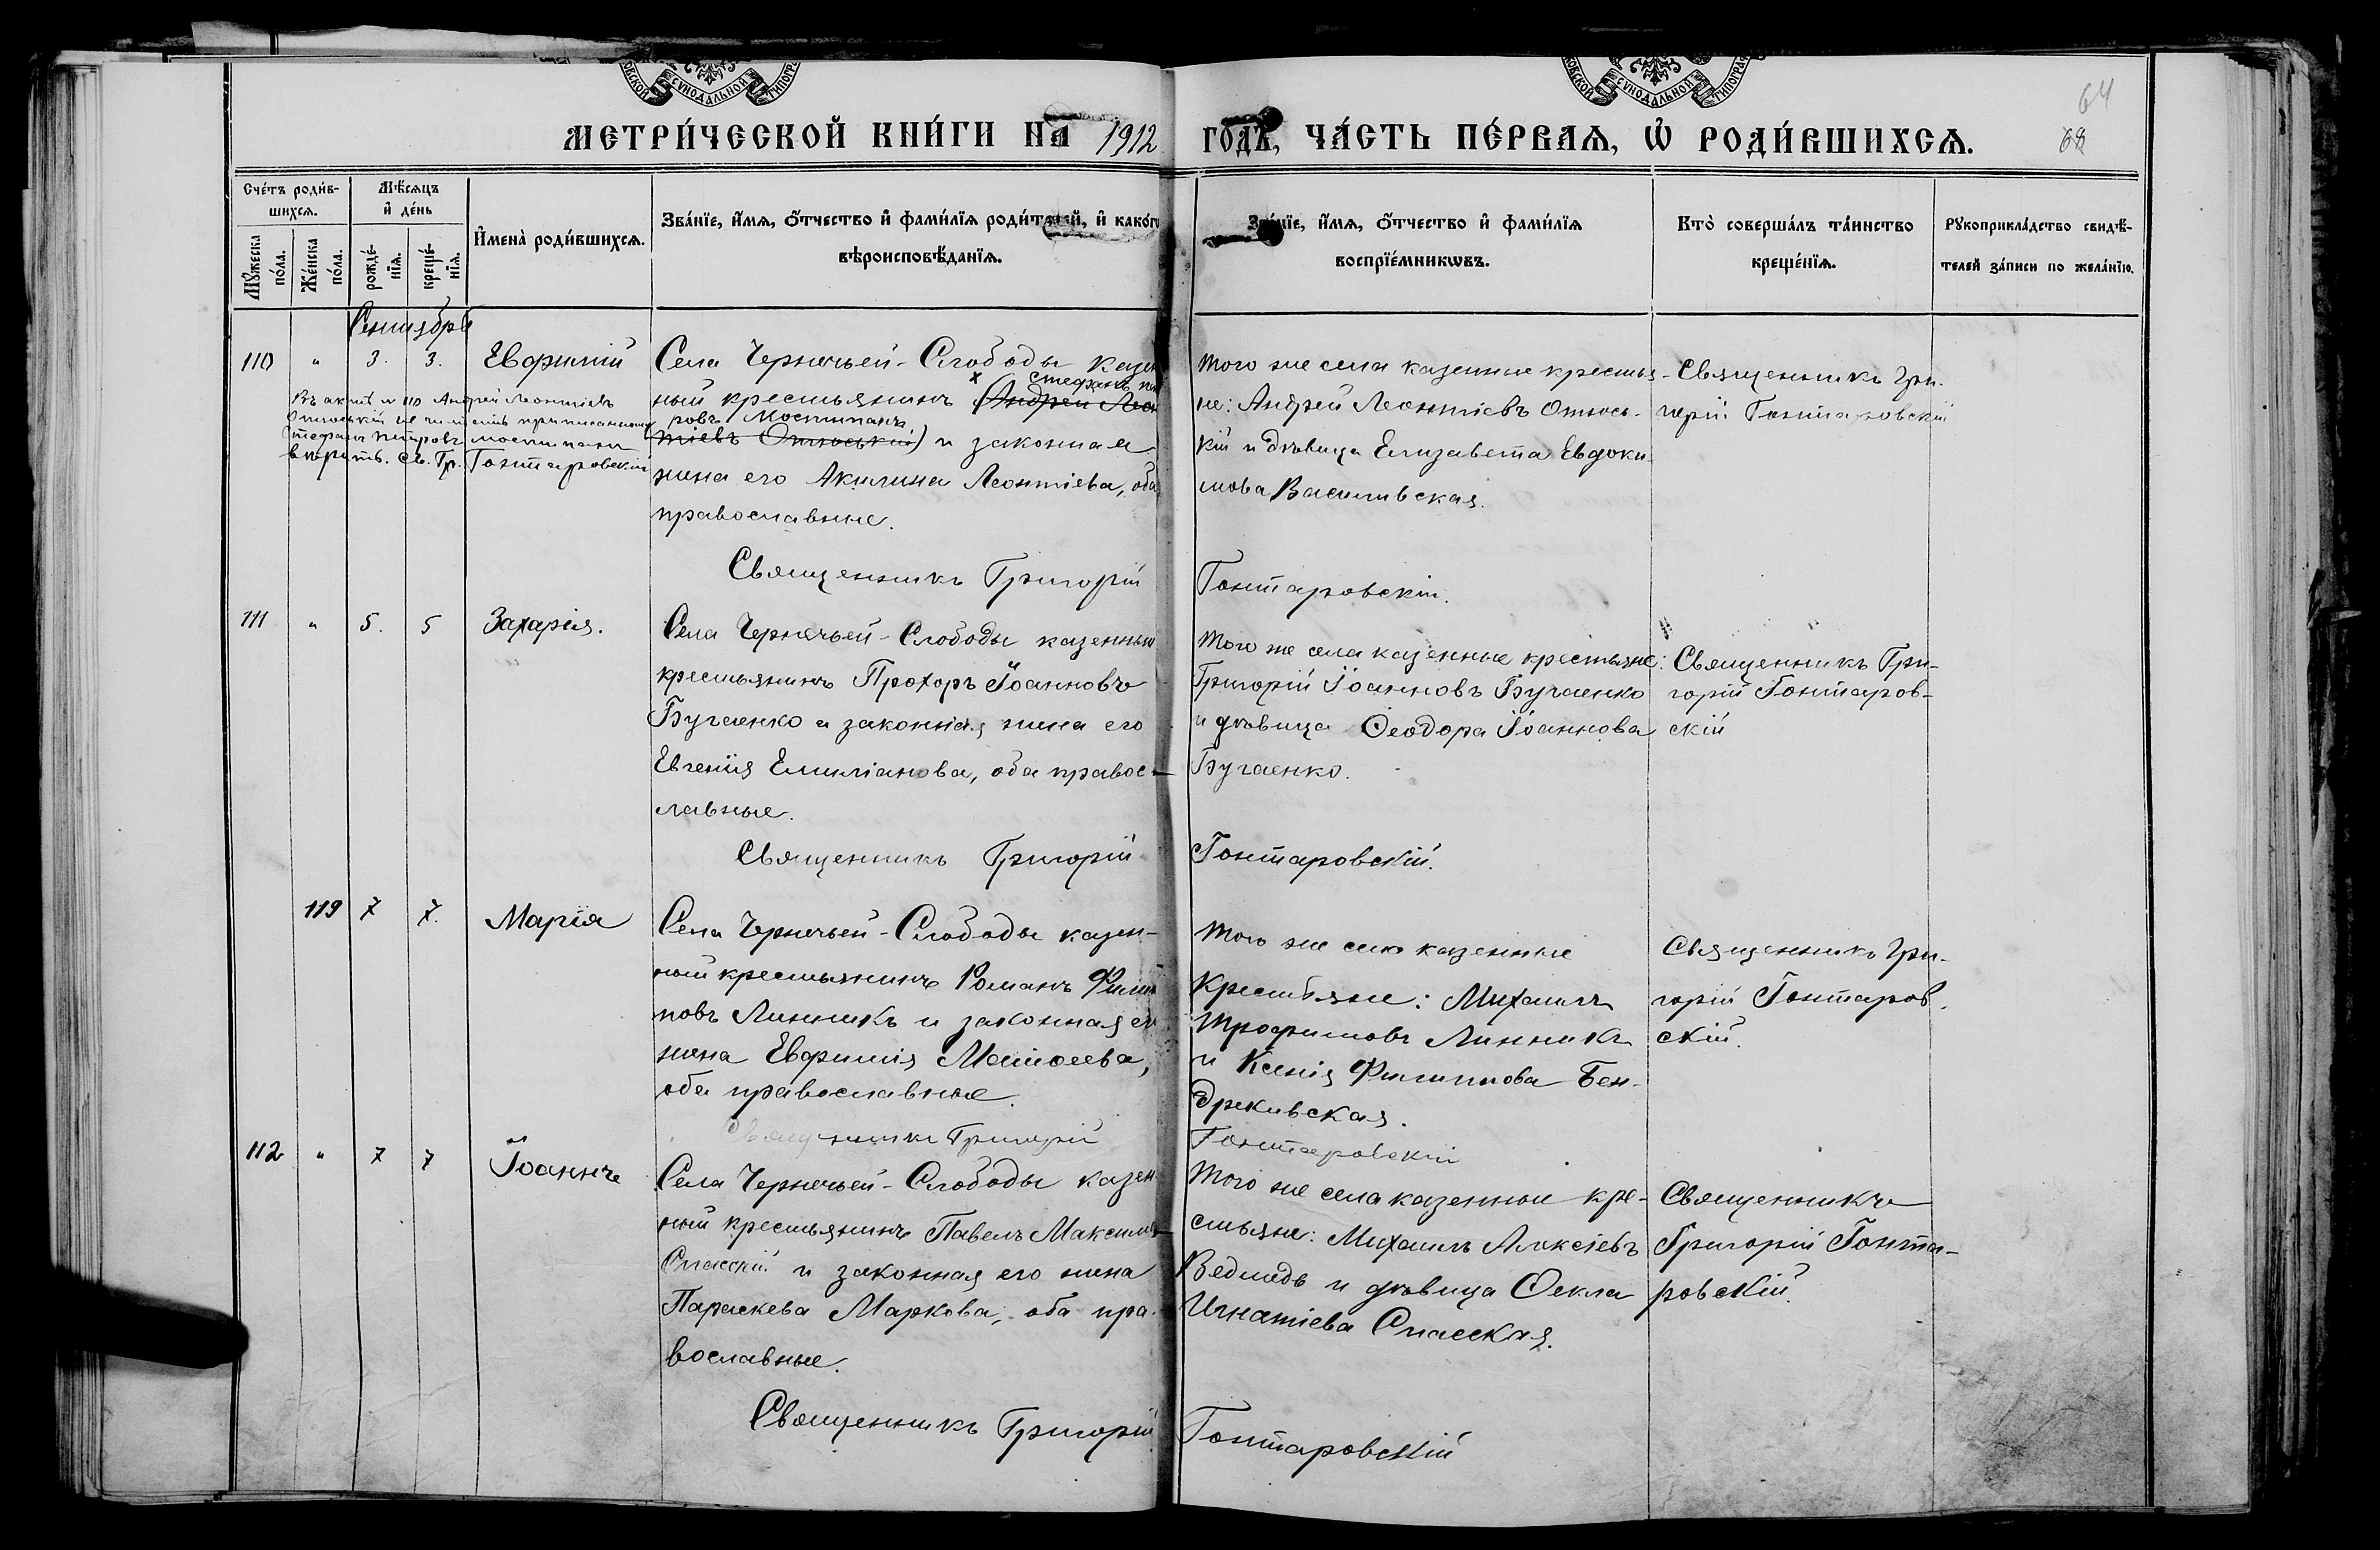 64
68
МЕТРИ́ЧЕСКОЙ КНИ́ГИ НА 1912 ГОДЪ, ЧА́СТЬ ПЕ́РВАЯ, Ѡ҆ РОДИ́ВШИХСѦ.
Сче́тъ роди́в-
шихся.
Мѣ́сяцъ
и҆ де́нь
Мꙋ́жеска по́ла.
Же́нска по́ла.
рожде́-
нїя.
креще́-
нїя.
И҆мена̀ роди́вшихся.
Зва́нїе, и҆́мя, ѻ҆́тчество и҆ фами́лїя роди́телей, и҆ како́го
вѣроисповѣ́данїя.
Зва́нїе, и҆́мя, ѻ҆́тчество и҆ фами́лїя
воспрїе́мникѡвъ.
Кто̀ соверша́лъ та́инство
креще́нїя.
Рꙋкоприкла́дство свидѣ́-
телей за́писи по жела́нїю.
Сентябрь
110 " 3. 3. Евфимій
Села Чернечьей-Слободы казен
ный крестьянинъ (Андрей Леон
Стефанъ Пет
ровъ Моспипанъ
тіевъ Отюськiй) и законная
жена его Акилина Леонтіева, оба
православные.
Въ актѣ № 110 Андрей Леонтіевъ
Стефанъ Петровъ Моспипанъ
вѣрить. Св. Гр. Гонтаровскій
Того же села казенные крестья-
не: Андрей Леонтіевъ Отюсь-
кій и дѣвица Елизавета Евдоки-
мова Василивская.
Священникъ Гри-
горій Гонтаровскій
Священникъ Григорій Гонтаровскій.
111 " 5. 5 Захарія.
Села Чернечьей-Слободы казенный
крестьянинъ Прохоръ Іоанновъ
Бугаенко и законная жена его
Евгенія Емиліанова, оба правос-
лавные.
Того же села казенные крестьяне:
Григорій Іоанновъ Бугаенко
и дѣвица Ѳеодора Іоаннова
Бугаенко.
Священникъ Гри-
горій Гонтаров-
скій
Священникъ Григорій Гонтаровскій.
119 7 7. Марія
Села Чернечьей-Слободы казен-
ный крестьянинъ Романъ Филип
повъ Линникъ и законная его
жена Евфимія Моисеева,
оба православные.
Того же села казенные
крестьяне: Михаилъ
Трофимовъ Линникъ
и Ксенія Филиппова Бен-
дрикивская.
Священникъ Гри-
горій Гонтаров-
скій.
Священникъ Григорій Гонтаровскій
112 " 7 7 Іоаннъ
Села Чернечьей-Слободы казен
ный крестьянинъ Павелъ Максимов
Спасскій и законная его жена
Параскева Маркова, оба пра-
вославные.
Того же села казенные кре-
стьяне: Михаилъ Алексіевъ
Ведмедь и дѣвица Ѳекла
Игнатіева Спасская.
Священникъ
Григорій Гонта-
ровскій.
Священникъ Григорій Гонтаровскій